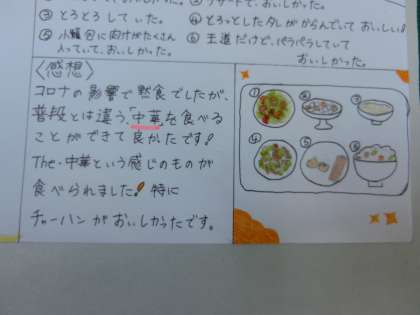 ② デザートで、おいしかった。
③ とろとろしていた。
④ とろっとしたタレがからんでいておいしい!
⑤ 小籠包に肉汁がたくさん
入っていて、おいしかった。
⑥ 王道だけど、パラパラしていて
おいしかった。
〈感想〉
コロナの影響で黙食でしたが、
普段とは違う、「中華」を食べる
ことができて良かったです!
The・中華という感じのものが
食べられました! 特に
チャーハンがおいしかったです。
① ② ③
④ ⑤ ⑥